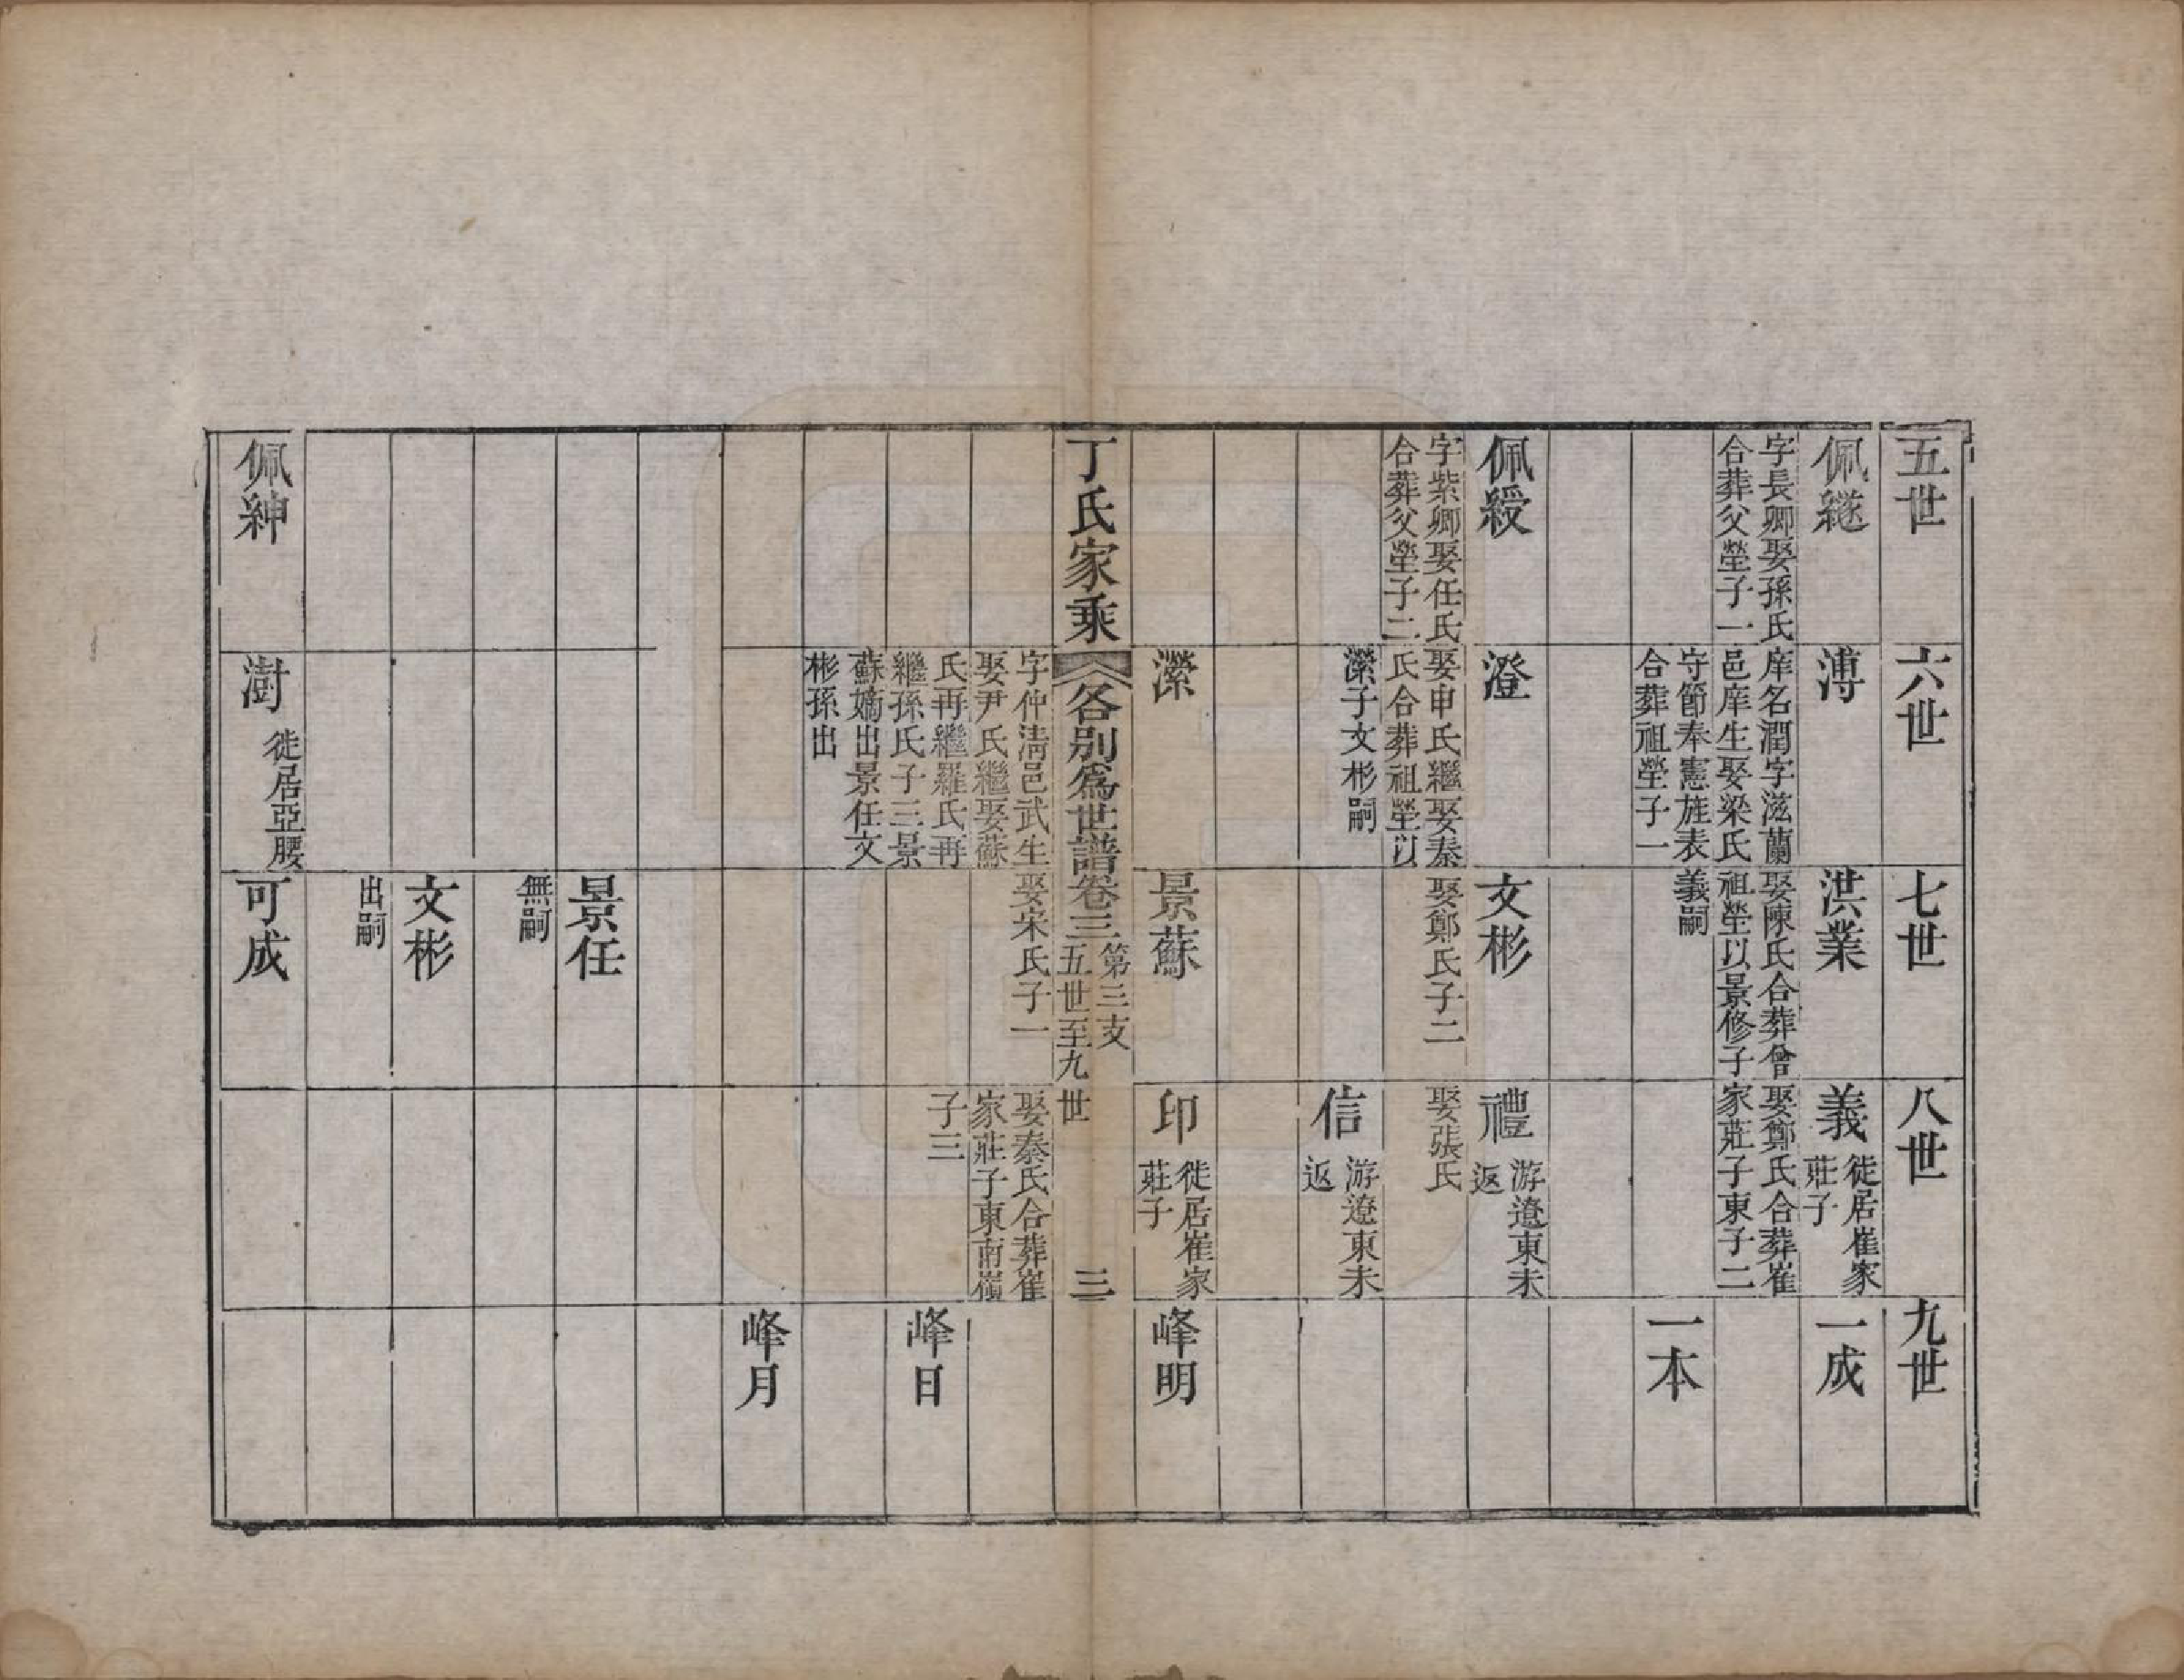 五世
六世
七世
八世
九世
佩繼
字長卿娶孫氏
合葬父塋子一
溥
庠名潤字滋蘭
邑庠生娶梁氏
守節奉憲旌表
合葬祖塋子一
洪業
娶陳氏合葬曾
祖塋以景修子
義嗣
義
徙居崔家
莊子
娶鄭氏合葬崔
家莊子東子二
一成
一本
佩綬
字紫卿娶任氏
合葬父塋子二
澄
娶申氏繼娶秦
氏合葬祖塋以
瀠子文彬嗣
文彬
娶鄭氏子二
禮
游遼東未
返
娶張氏
信
游遼東未
返
瀠
景蘇
印
徙居崔家
莊子
峰明
丁氏家乘
各別爲世譜卷三
第三支
五世至九世
三
字仲清邑武生
娶尹氏繼娶蘇
氏再繼羅氏再
繼孫氏子三景
蘇嫡出景任文
彬孫出
娶宋氏子一
娶秦氏合葬崔
家莊子東南嶺
子三
峰日
峰月
景任
無嗣
文彬
出嗣
佩紳
澍
徙居亞腰
可成